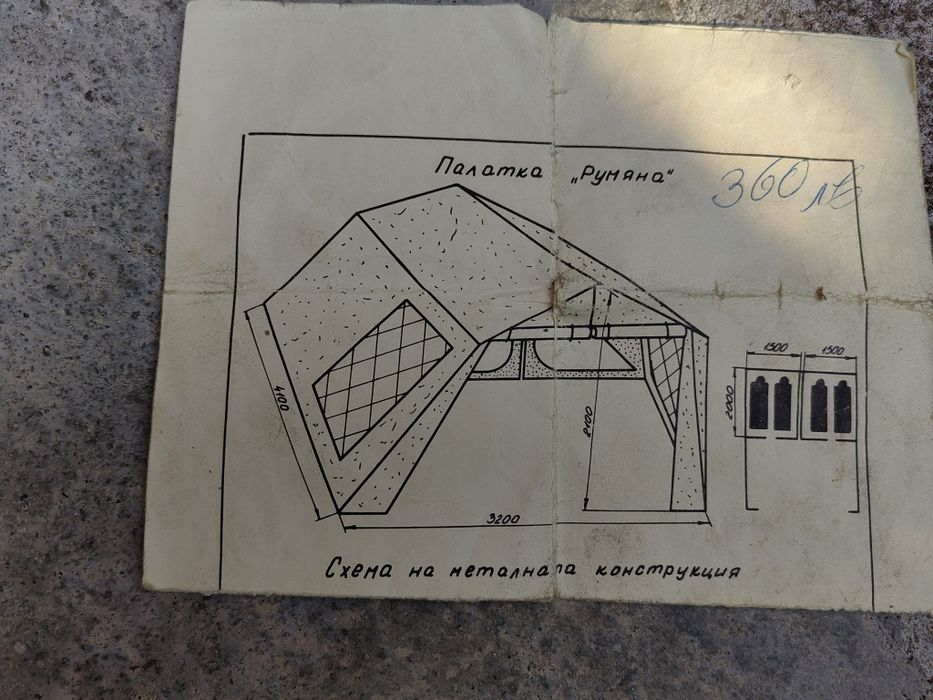 Палатка „Румяна“
360 лв
1500 1500
2000
4100
2100
3200
Схема на металната конструкция